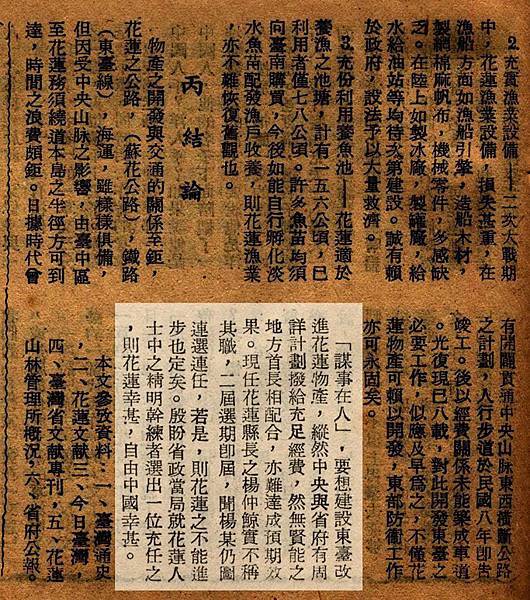 2.充實漁業設備——二次大戰期
中，花蓮漁業設備，損失甚重，在
漁船方面如漁船引擎，造船木材，
製網棉麻帆布，機械零件，多感缺
乏。在陸上如製冰廠，製罐廠，給
水給油站等均待次第建設。誠有賴
於政府，設法予以大量救濟。
3.充份利用養魚池——花蓮適於
養漁之池塘，計有一五六公頃，已
利用者僅七八公頃。許多魚苗均須
向臺南購買，今後如能自行孵化淡
水魚苗配發漁戶收養，則花蓮漁業
，亦不難恢復舊觀也。
丙　結　論
物產之開發與交通的關係至鉅，
花蓮之公路，（蘇花公路），鐵路
（東臺線），海運，雖樣樣俱備，
但因受中央山脉之影響，由臺中區
至花蓮務須繞道本島之半徑方可到
達，時間之浪費頗鉅。日據時代曾
有開闢貫通中央山脉東西橫斷公路
之計劃，人行步道於民國八年即告
竣工。後以經費關係未能築成車道
。光復現已八載，對此開發東臺之
必要工作，似應及早爲之，不僅花
蓮物產可賴以開發，東部防衛工作
亦可永固矣。
「謀事在人」，要想建設東臺改
進花蓮物產，縱然中央與省府有周
詳計劃撥給充足經費，然無賢能之
地方首長相配合，亦難達成預期效
果。現任花蓮縣長之楊仲鯨實不稱
其職，二屆選期卽屆，聞楊某仍圖
連選連任，若是，則花蓮之不能進
步也定矣。殷盼省政當局就花蓮人
士中之精明幹練者選出一位充任之
，則花蓮幸甚，自由中國幸甚。
本文參攷資料：一、臺灣通史
，二、花蓮文獻三、今日臺灣，
四、臺灣省文献專刊，五、花蓮
山林管理所概況，六、省府公報。